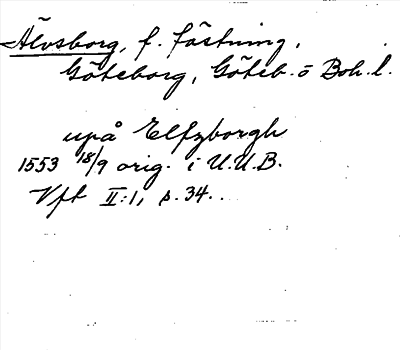 Älvsborg, f. fästning,
Göteborg, Göteb. o Boh. l.
upå Elfzborgh
1553 18/9 orig. i U.U.B.
Vft II:1, s. 34.